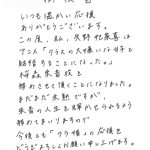 いつも温かい応援
ありがとうございます。
この度、私、矢野妃菜喜は
アニメ「クラスの大嫌いな女子と
結婚することになった。」
桜森朱音役を
務めさせて頂くことになりました。
まだまだ未熟ですが、
朱音の人生を輝かせられるよう
務めてまいりますので
今後とも「クラ婚」の応援を
どうぞよろしくお願い申し上げます。